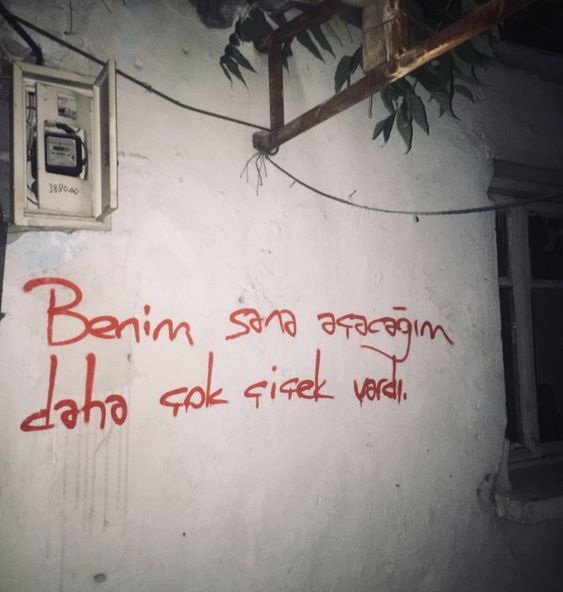 38800
Benim sana açacağım
daha çok çiçek vardı.